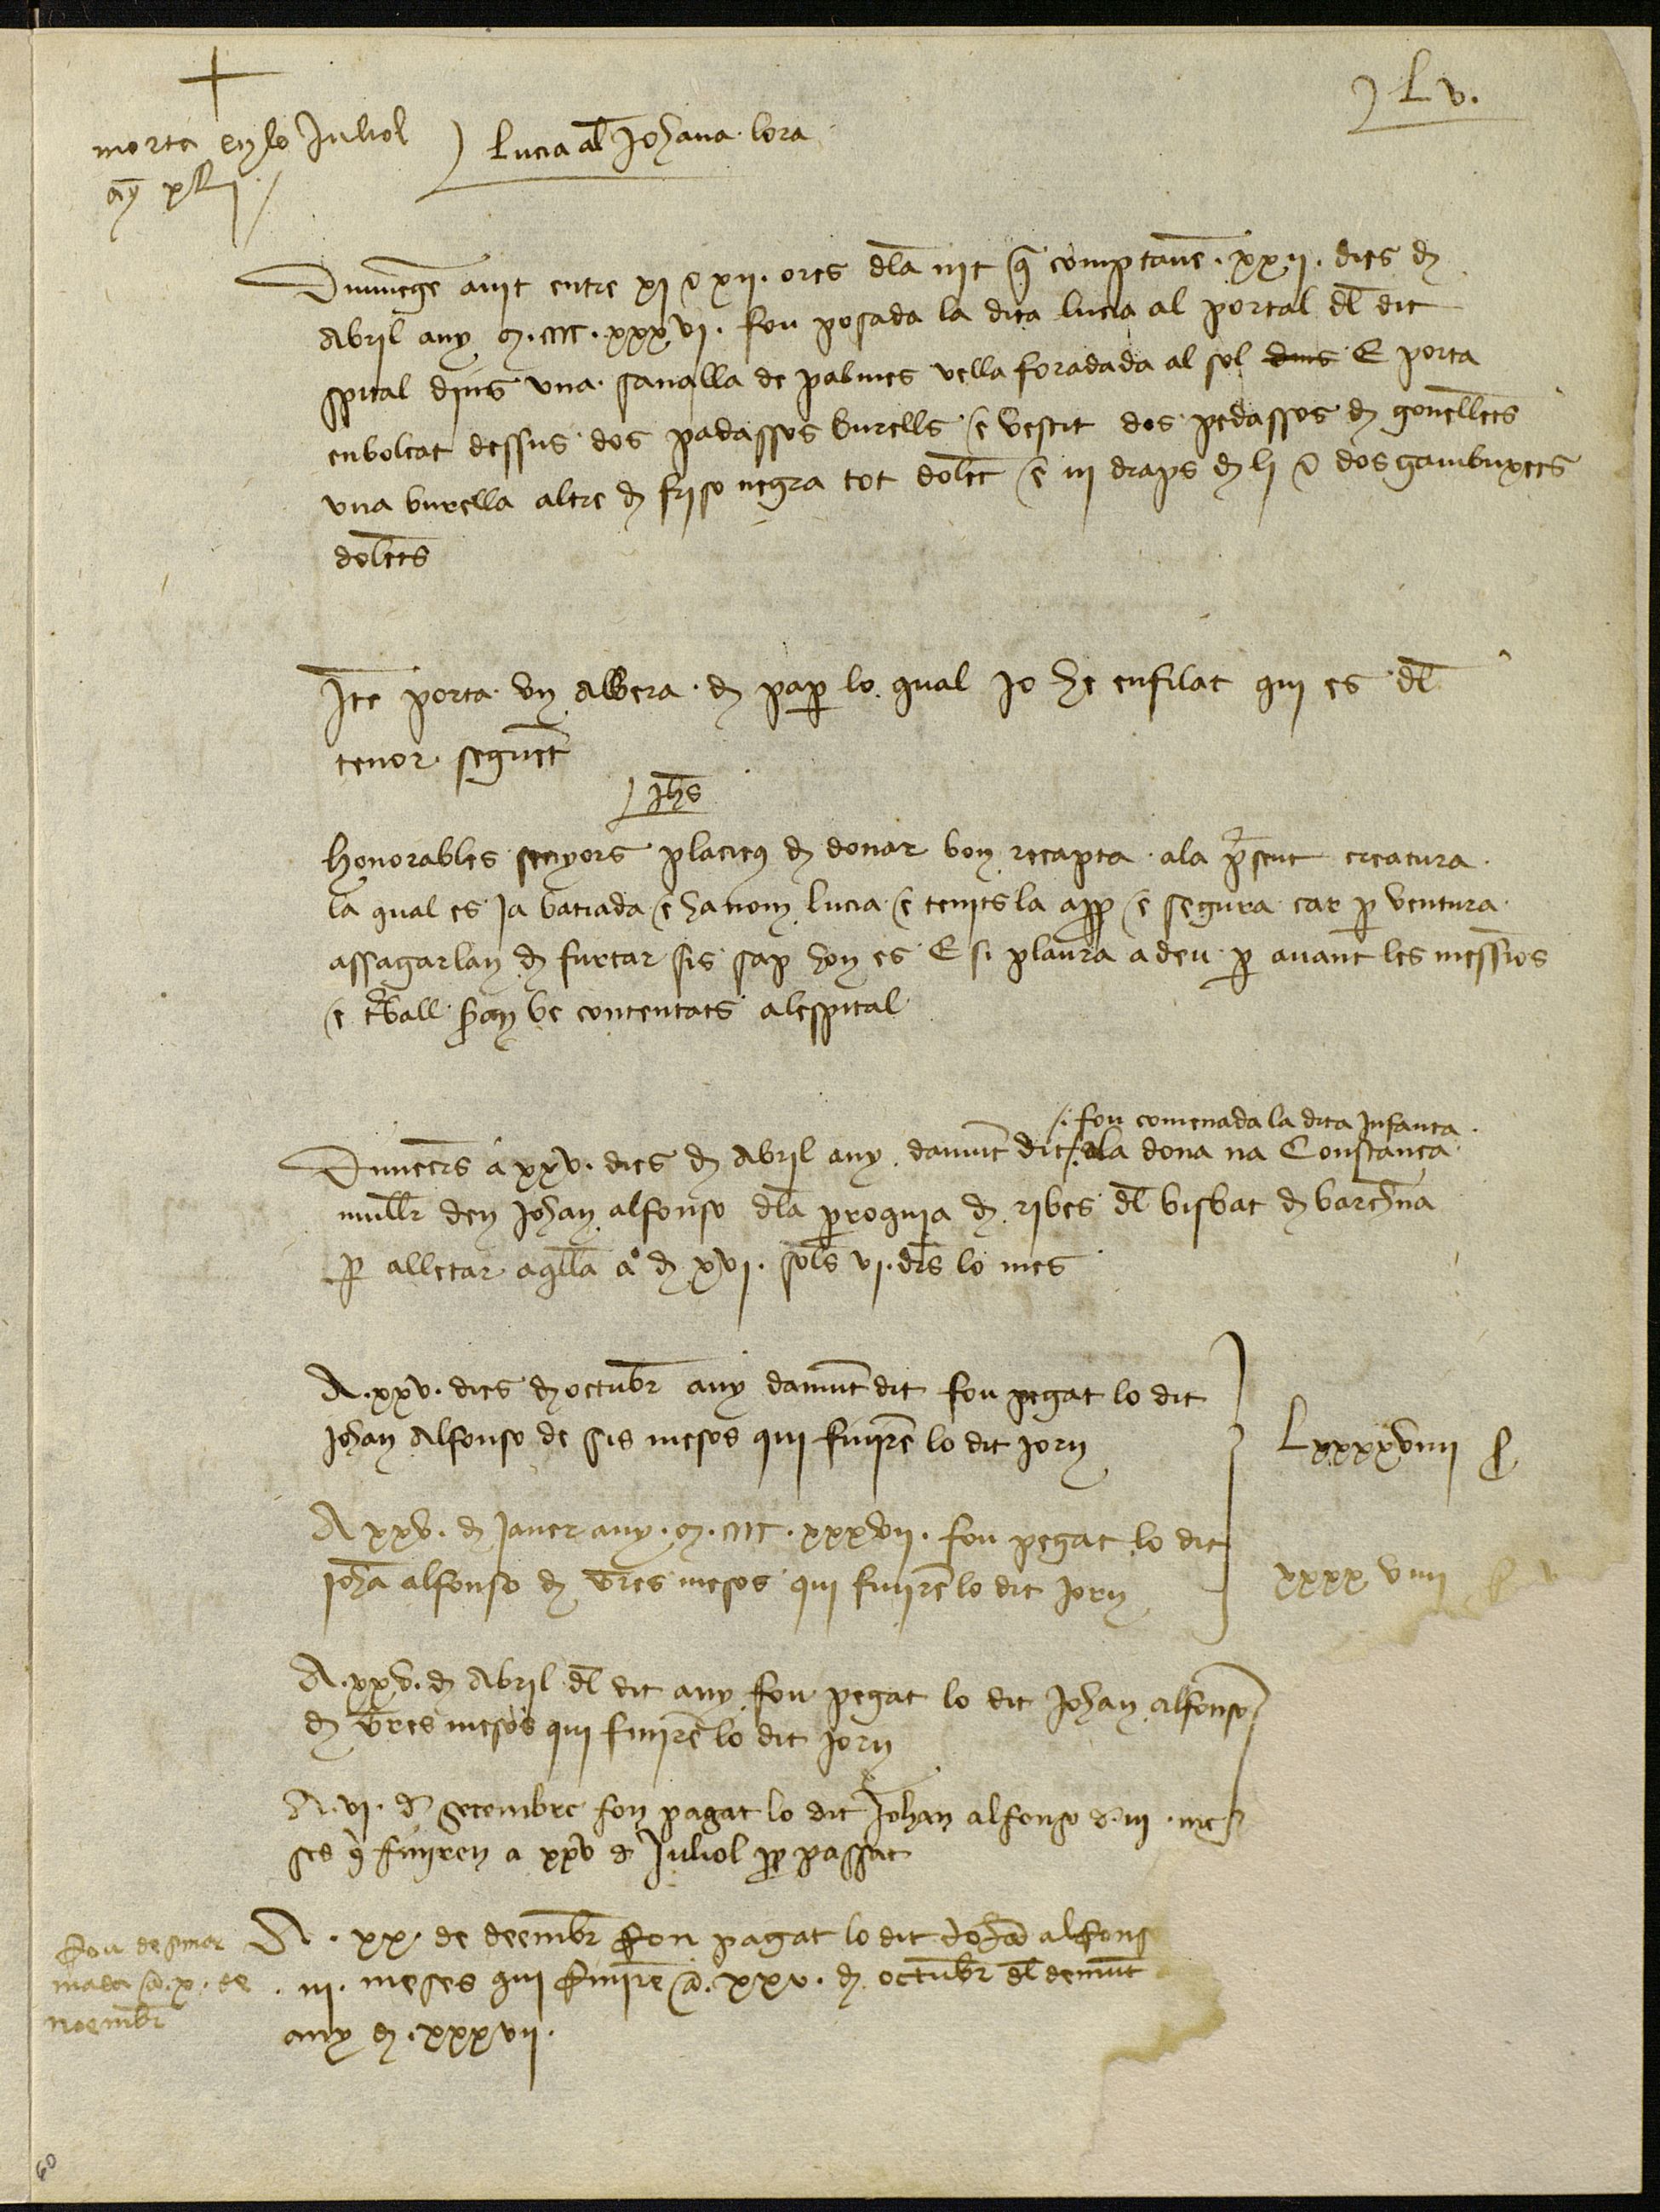 L v.
morta en lo Juliol
any xl i
Lucia al Johana lora
Diumenge a nit entre xi e xii. ores dla nit q comptave. xxii. dies d
Abril any M. CCCC. xxxvi. fou posada la dita lucia al portal dl dit
spital dins una sanalla de palmes vella foradada al sol dins E porta
enbolcat dessus dos padassos burells e vestit dos pedassos d gonelletes
una burella altre d friso negra tot dolet e iii draps d li e dos gambuxets
dolets
Ite porta un albera d pap lo qual jo he enfilat qui es dl
tenor seguet
Jhs
honorables senyors placieus d donar bon recapta ala psent creatura
la qual es ja batiada e ha nom lucia e tenits la app e segura car p ventura
assagarlan d furtar sis sap hon es E si plaura a deu p auant les messios
e tball seran be contentats alespital
fou comenada la dita Infanta
Dimecrs a xxv. dies d Abril any damut dit ala dona na Constanca
mullr den Johan alfonso dla proquia d ribes dl bisbat d barchna
p alletar aqlla a d xvi. sols vi. drs lo mes
A. xxv. dies d octubr any damut dit fou pegat lo dit
Johan Alfonso de sis mesos qui finire lo dit jorn
Lxxxxviiii s
A xxv. d Janer any. M. CCCC. xxxvii. fou pegat lo dit
Joha alfonso d tres mesos qui finire lo dit jorn
xxxx viiii s
A. xxv. d Abril dl dit any fou pegat lo dit Johan alfonso
d tres mesos qui finire lo dit jorn
A. vi. d setembre fon pagat lo dit Johan alfonso d iii. me
ses q finiren a xxv d Juliol pp passat
fou desmar
mada a. x. de
noembr
A. xx. de deembr fon pagat lo dit Joha alfons
. iii. meses qui finire a. xxv. d octubr dl demut
any d. xxxvii.
60